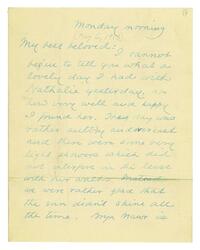 Monday morning
My best beloved:
I cannot
begin to tell you what a
lovely day I had with
Nathalie yesterday, or
how very well and happy
I found her. The day was
rather sultry and overcast
and there were some very
light showers which did
not interfere in the least
with our walks. Instead
we were rather glad that
the sun didn't shine all
the time. Miss